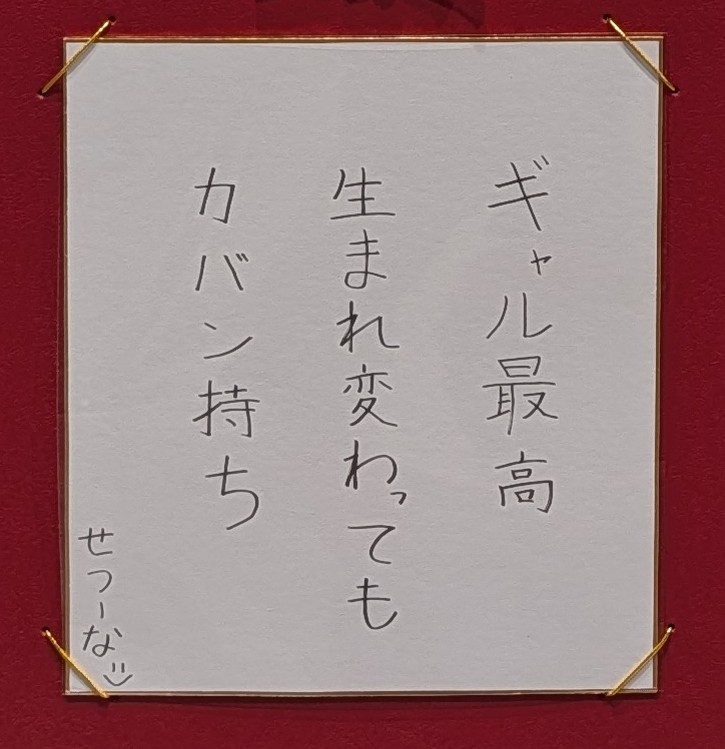 ギャル最高
生まれ変わっても
カバン持ち
せつーな